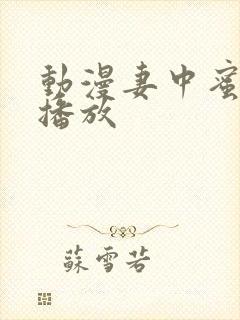 動漫妻中蜜
播放
蘇雪若